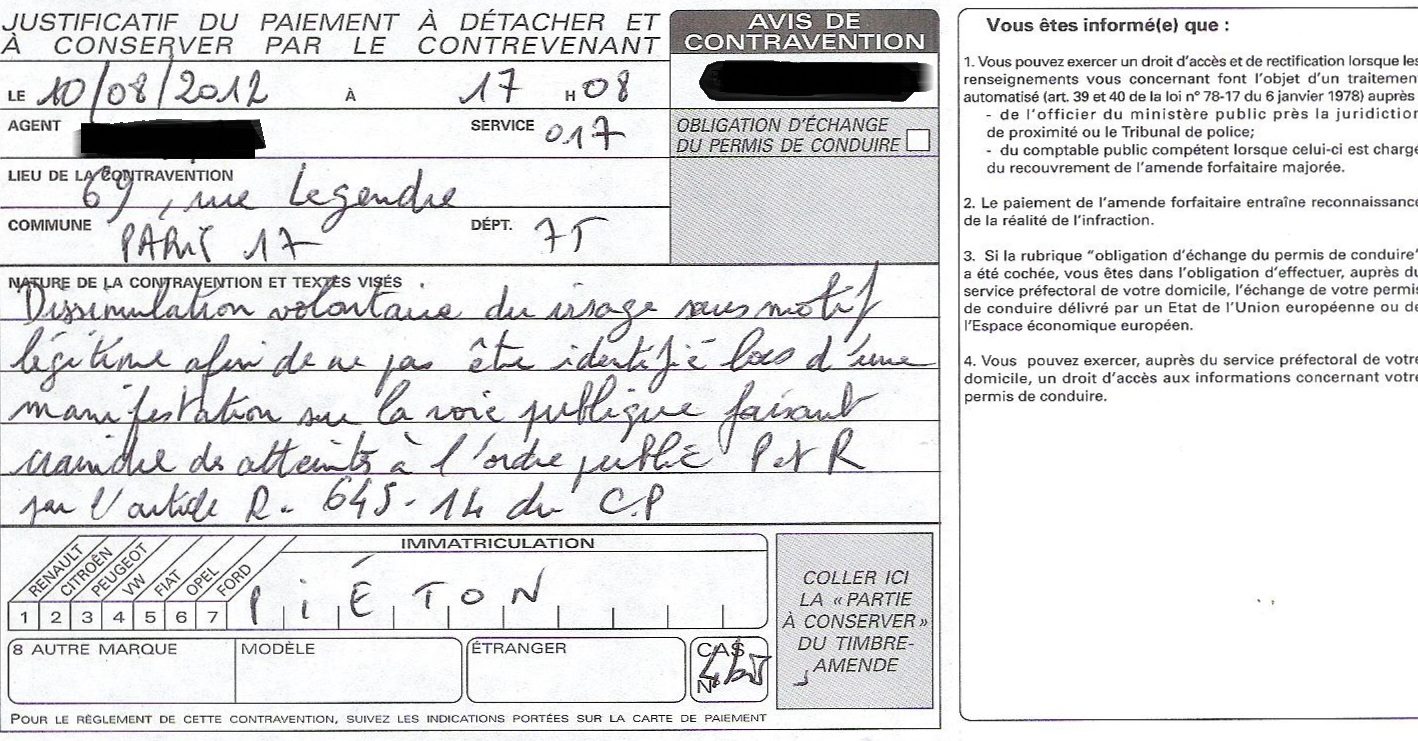 JUSTIFICATIF DU PAIEMENT À DÉTACHER ET
À CONSERVER PAR LE CONTREVENANT
AVIS DE
CONTRAVENTION
LE 10/08/2012 À 17 H 08
AGENT
SERVICE 017
OBLIGATION D'ÉCHANGE
DU PERMIS DE CONDUIRE
LIEU DE LA CONTRAVENTION
69, rue Legendre
COMMUNE PARIS 17 DÉPT. 75
NATURE DE LA CONTRAVENTION ET TEXTES VISÉS
Dissimulation volontaire du visage sans motif
légitime afin de ne pas être identifié lors d'une
manifestation sur la voie publique faisant
craindre des atteintes à l'ordre public P et R
par l'article R. 645-14 du C.P
IMMATRICULATION
RENAULT
CITROËN
PEUGEOT
VW
FIAT
OPEL
FORD
1 2 3 4 5 6 7
PIÉTON
8 AUTRE MARQUE
MODÈLE
ÉTRANGER
CAS
N°
COLLER ICI
LA « PARTIE
À CONSERVER »
DU TIMBRE-
AMENDE
POUR LE RÈGLEMENT DE CETTE CONTRAVENTION, SUIVEZ LES INDICATIONS PORTÉES SUR LA CARTE DE PAIEMENT
Vous êtes informé(e) que :
1. Vous pouvez exercer un droit d'accès et de rectification lorsque les
renseignements vous concernant font l'objet d'un traitemen
automatisé (art. 39 et 40 de la loi n° 78-17 du 6 janvier 1978) auprès
- de l'officier du ministère public près la juridiction
de proximité ou le Tribunal de police;
- du comptable public compétent lorsque celui-ci est chargé
du recouvrement de l'amende forfaitaire majorée.
2. Le paiement de l'amende forfaitaire entraîne reconnaissance
de la réalité de l'infraction.
3. Si la rubrique "obligation d'échange du permis de conduire"
a été cochée, vous êtes dans l'obligation d'effectuer, auprès du
service préfectoral de votre domicile, l'échange de votre permis
de conduire délivré par un Etat de l'Union européenne ou de
l'Espace économique européen.
4. Vous pouvez exercer, auprès du service préfectoral de votre
domicile, un droit d'accès aux informations concernant votre
permis de conduire.